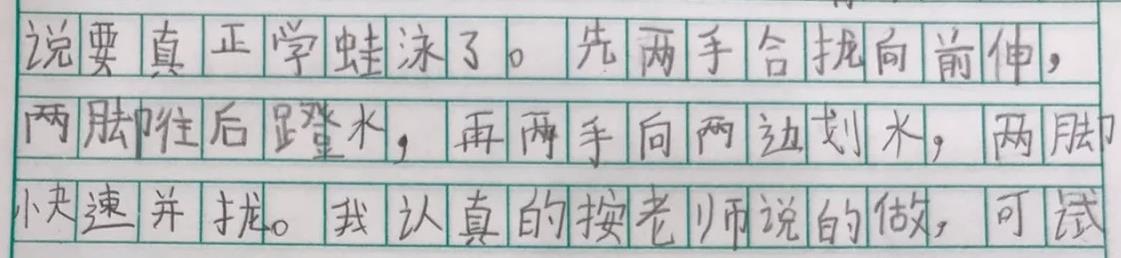 说要真正学蛙泳了。先两手合拢向前伸，
两脚往后蹬水，再两手向两边划水，两脚
快速并拢。我认真的按老师说的做，可试